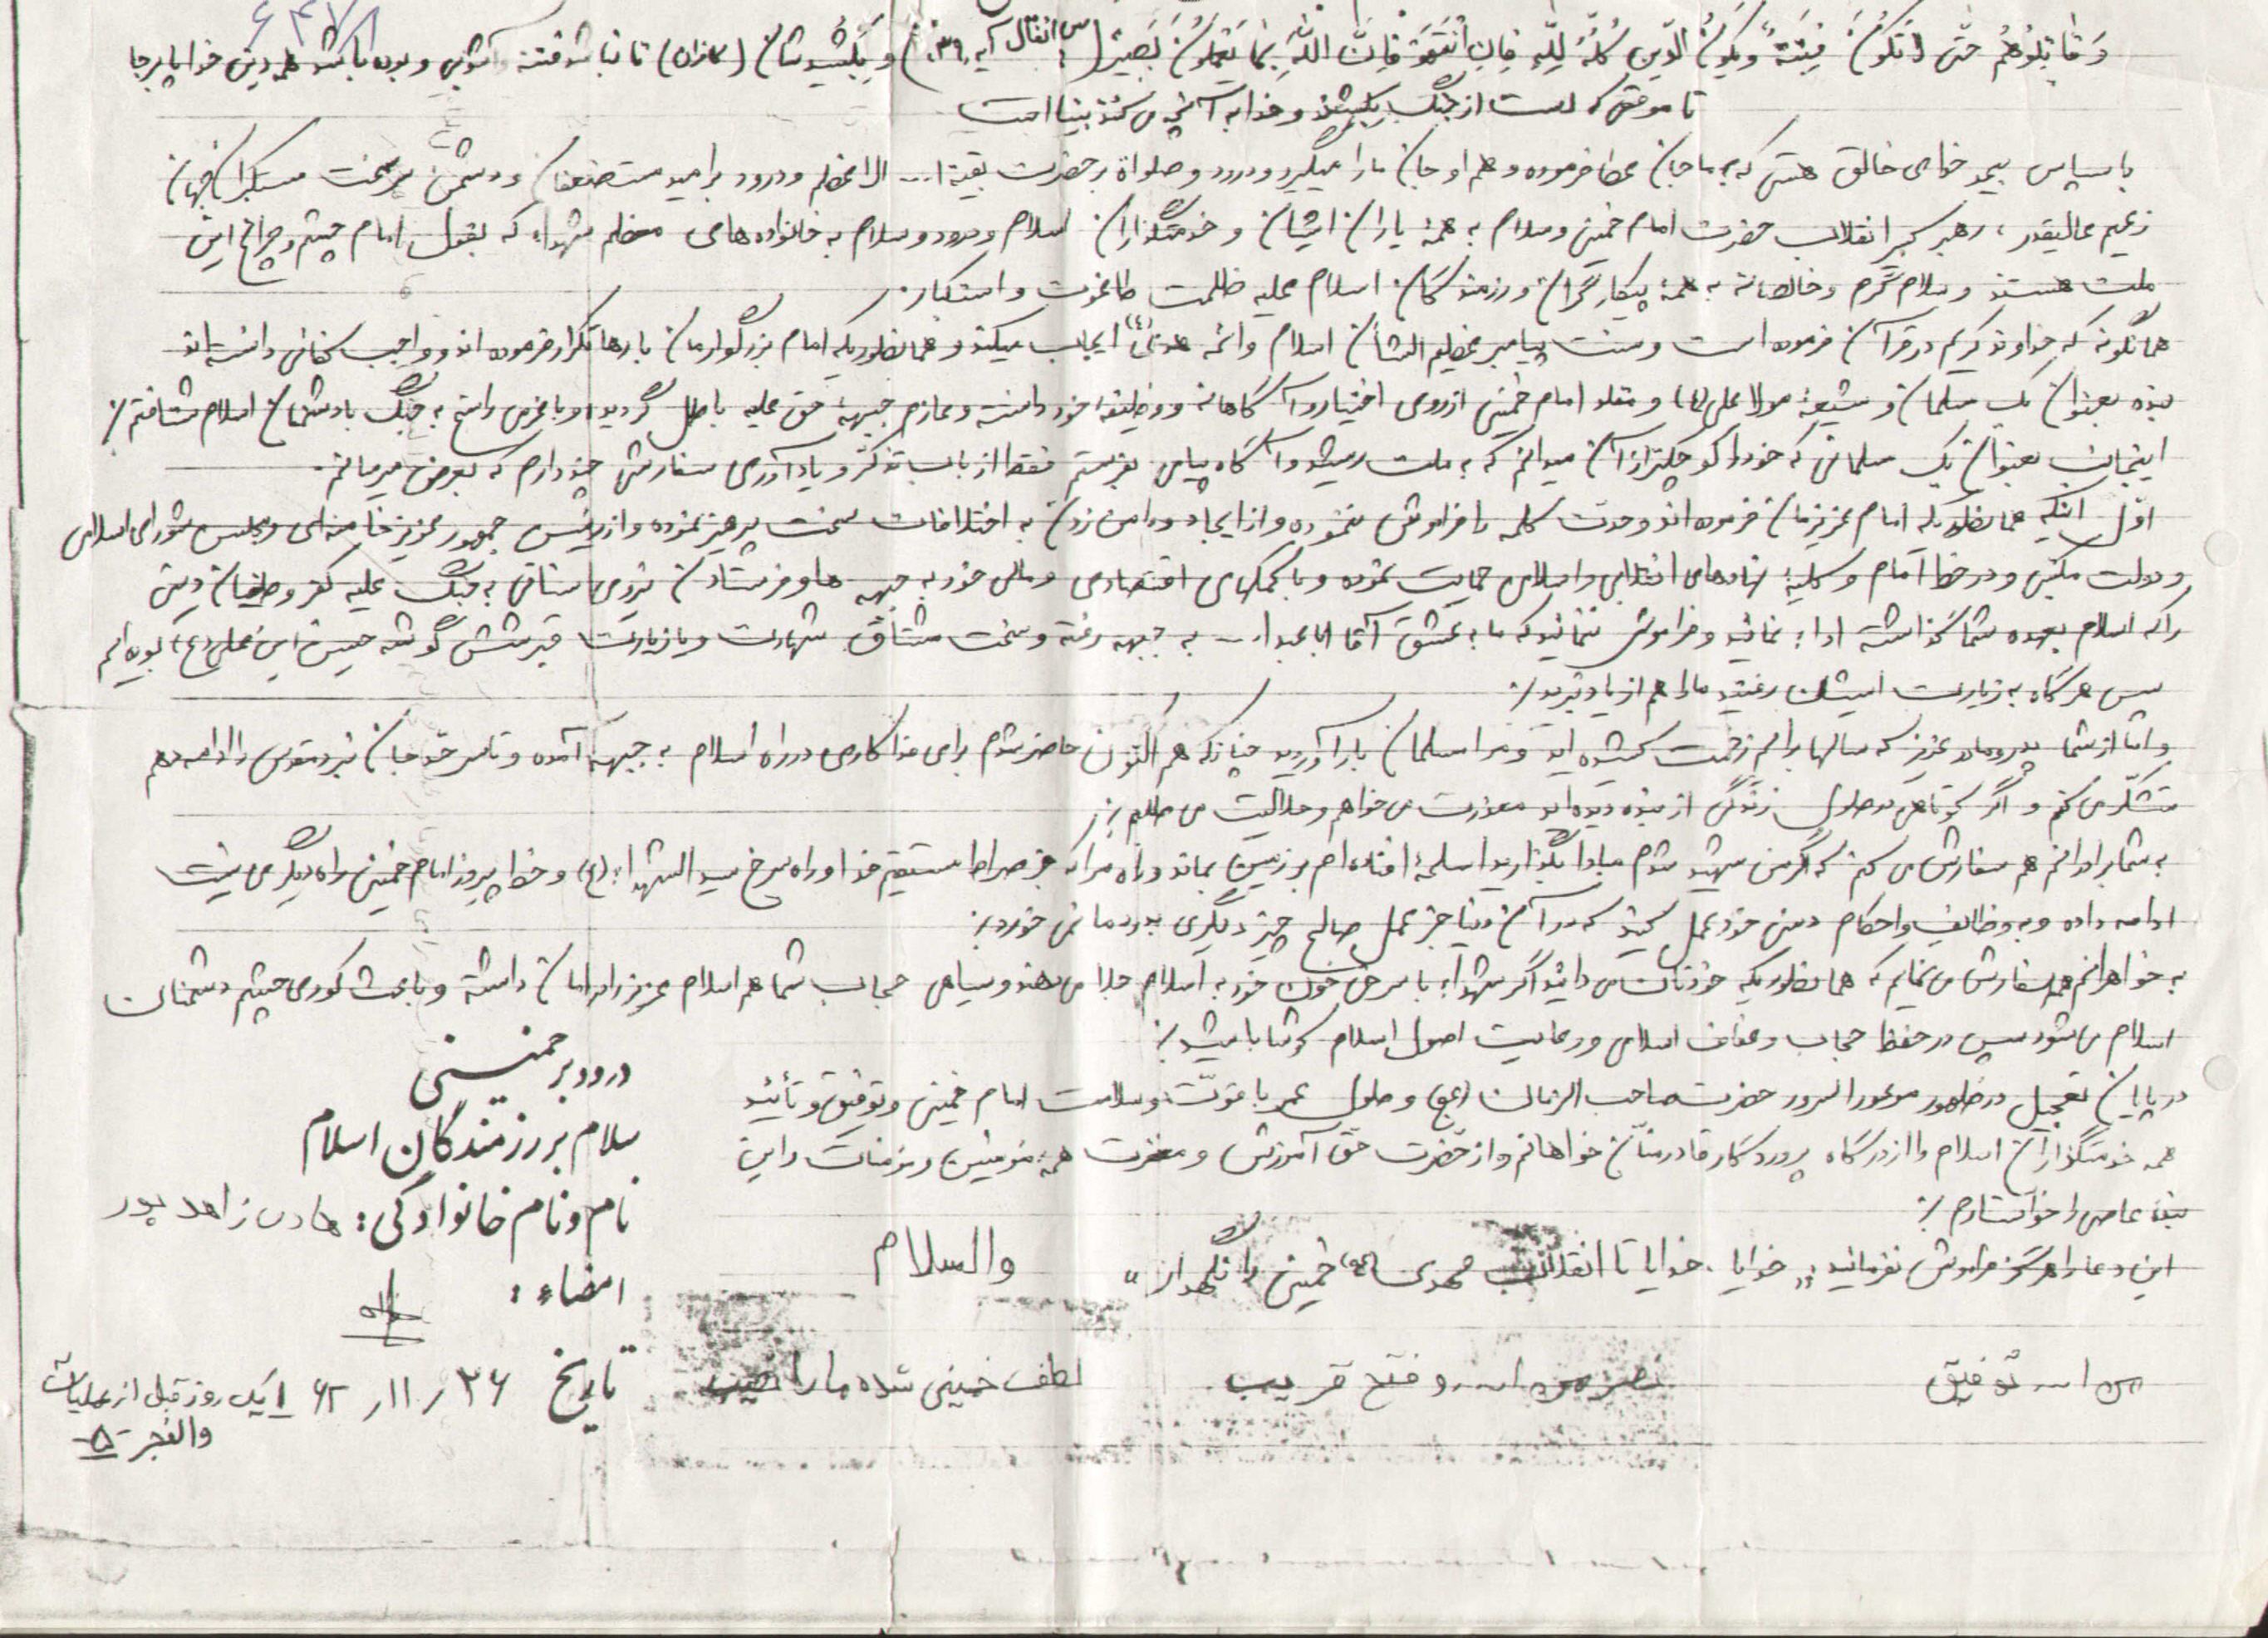 ۶۴۷۸
وَقاتِلُوهُم حَتّی لاتَکُونَ فِتنَةٌ وَیَکُونَ الدّینِ کُلُّهُ لِلّهِ فَاِنِ انتَهَوْ فَاِنَّ اللّهَ بِما یَعمَلُونَ بَصیرٌ (س انفال آیه ۳۹) و بکشیدشان (کافران) تا نباشد فتنه و آشوبی و بوده باشد همه دین خدا پابرجا
تا موقعی که دست از جنگ بکشند و خدا به آنچه می کنند بینا است
با سپاس بیحد خدای خالق هستی که به ما جان عطا فرموده و هم او جان ما را میگیرد و درود و صلواة بر حضرت بقیة ا... الاعظم و درود بر امید مستضعفان و دشمن سرسخت مستکبران جهان
زعیم عالیقدر، رهبر کبیر انقلاب حضرت امام خمینی و سلام به همۀ یاران ایشان و خدمتگذاران اسلام و درود و سلام به خانواده های معظم شهداء که بقول امام چشم و چراغ این
ملت هستند و سلام گرم و خالصانه به همۀ پیکارگران و رزمندگان اسلام علیه ظلمت طاغوت و استکبار.
همانگونه که خداوند کریم در قرآن فرموده است و سنت پیامبر عظیم الشأن اسلام و ائمه هدی (ع) ایجاب میکند و همانطوریکه امام بزرگوارمان بارها تکرار فرموده اند و واجب کفائی دانسته اند
بنده بعنوان یک مسلمان و شیعۀ مولا علی (ع) و مقلد امام خمینی از روی اختیار و آگاهانه و وظیفۀ خود دانسته و عازم جبهۀ حق علیه باطل گردیده و با عزمی راسخ به جنگ با دشمنان اسلام شتافتم./
اینجانب بعنوان یک مسلمانی که خود را کوچکتر از آن میدانم که به ملت رشید و آگاه پیامی بفرستم فقط از باب تذکر و یادآوری سفارشی چند دارم که بعرض میرسانم.
اوّل اینکه همانطوریکه امام عزیزمان فرموده اند وحدت کلمه را فراموش ننموده و از ایجاد و دامن زدن به اختلافات سخت پرهیز نموده و از رئیس جمهور عزیز خامنه ای و مجلس شورای اسلامی
و دولت مکتبی و در خط امام و کلیۀ نهادهای انقلابی و اسلامی حمایت نموده و با کمکهای اقتصادی و مالی خود به جبهه ها و فرستادن نیروی انسانی به جنگ علیه کفر و طغیان دینی
را که اسلام بعهده شما گذاشته اداء نمائید و فراموش ننمائید که ما به عشق آقا ابا عبدا... به جبهه رفته و سخت مشتاق شهادت و یا زیارت قبر شش گوشه حسین ابن علی (ع) بوده ایم
پس هرگاه به زیارت ایشان رفتید ما را هم از یاد نبرید./
و امّا از شما پدر و مادر عزیز که سالها برایم زحمت کشیده اید و مرا مسلمان بار آوردید چنانکه هم اکنون حاضر شدم برای فداکاری در راه اسلام به جبهه آمده و تا سر حدّ جان نبرد مقدس را ادامه دهم
متشکّرم می کنم و اگر کوتاهی در طول زندگی از بنده دیده اید معذرت می خواهم و حلالیت می طلبم./
به شما برادرانم هم سفارش می کنم که اگر من شهید شدم مبادا بگذارید اسلحۀ افتاده ام بر زمین بماند و راه مرا که جز صراط مستقیم خدا و راه سرخ سید الشهداء (ع) و خط پیروز امام خمینی راه دیگری نیست
ادامه داده و به وظائف و احکام دینی خود عمل کنید که در آن دنیا جز عمل صالح چیز دیگری بدرد ما نمی خورد./
به خواهرانم هم سفارش می نمایم که همانطوریکه خودتان می دانید اگر شهداء با سرخی خون خود به اسلام جلا می دهند و سیاهی حجاب شما هم اسلام عزیز را در امان داشته و باعث کوری چشم دشمنان
اسلام می شود پس در حفظ حجاب و عفاف اسلامی و رعایت اصول اسلام کوشا باشید./
در پایان تعجیل در ظهور موفور السرور حضرت صاحب الزمان (عج) و طول عمر با عزّت و سلامت امام خمینی و توفیق و تأئید
همه خدمتگذاران اسلام را از درگاه پروردگار قادر منّان خواهانم و از حضرت حق آمرزش و مغفرت همۀ مؤمنین و مؤمنات و این
بندۀ عاصی را خواستارم./
این دعا را هرگز فراموش نفرمائید: «خدایا، خدایا تا انقلاب مهدی (عج) خمینی را نگهدار»
والسلام
من ا... توفیق
نصر من ا... و فتح قریب
لطف خمینی شده ما را نصیب
درود بر خمینی
سلام بر رزمندگان اسلام
نام و نام خانوادگی: هادی زاهد پور
امضاء:
تاریخ ۲۶ / ۱۱ / ۶۲ یک روز قبل از عملیات
والفجر -۵-